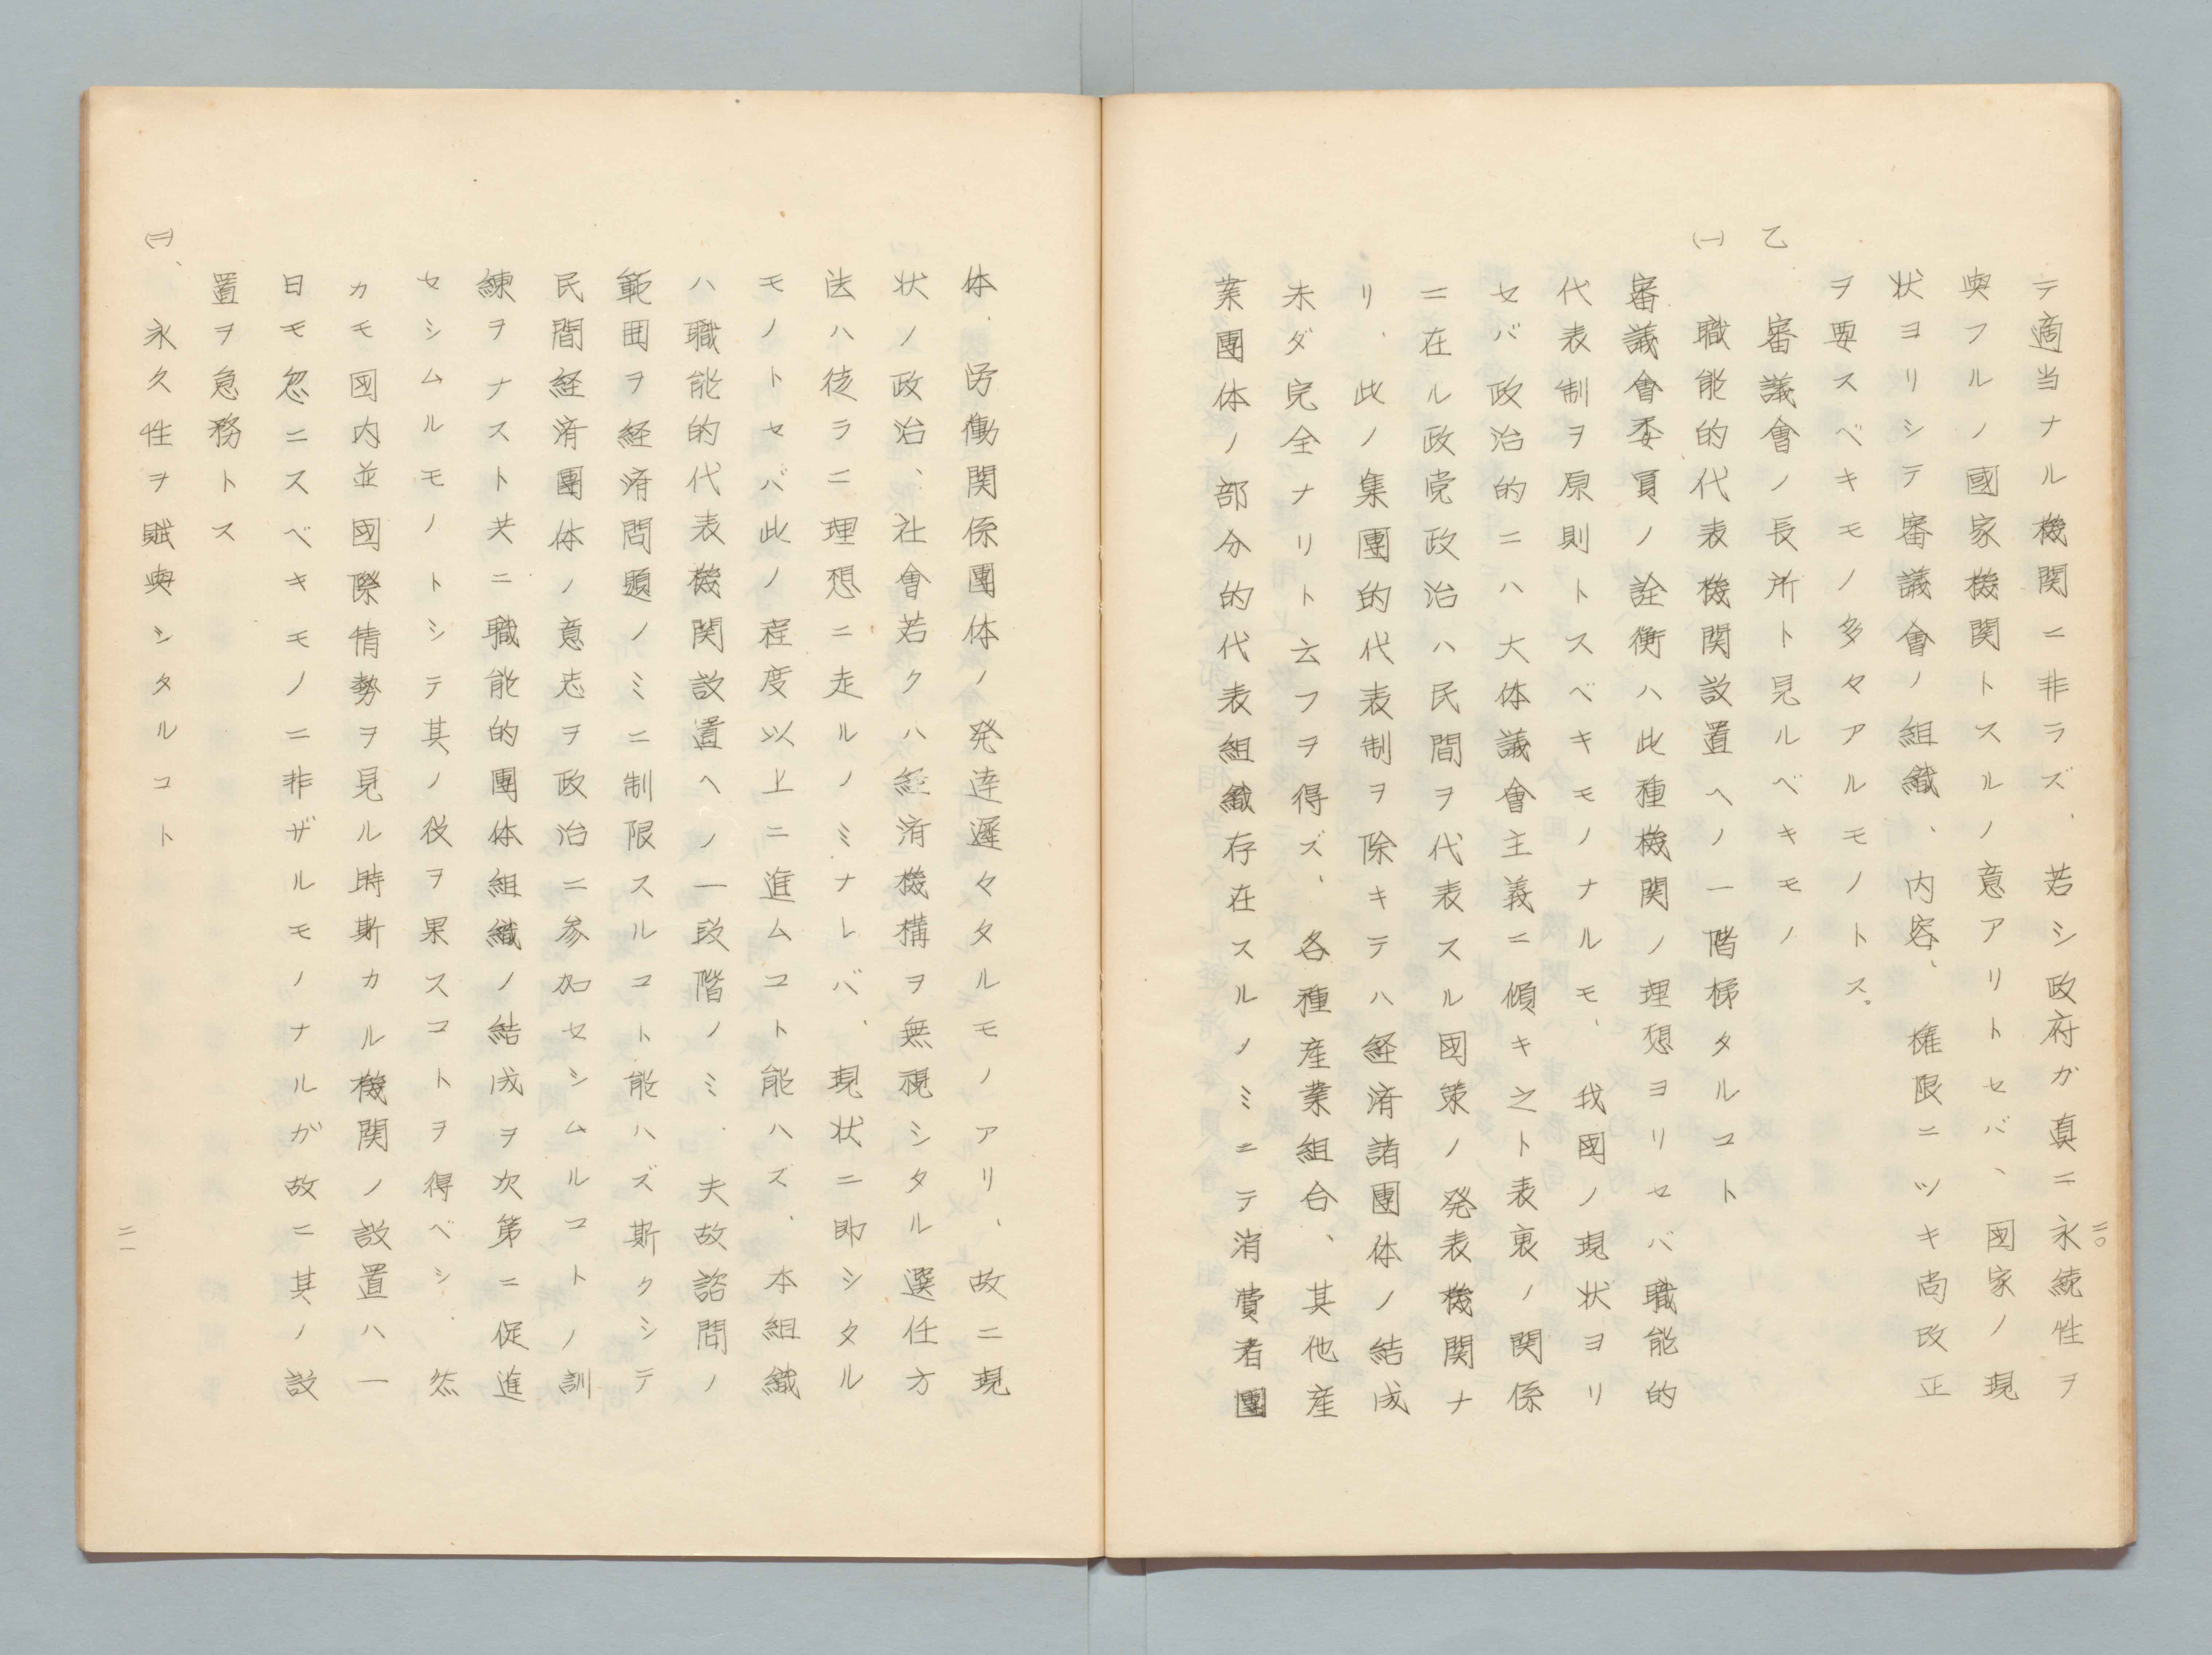 テ適当ナル機関ニ非ラズ、若シ政府ガ真ニ永続性ヲ
與フルノ國家機関トスルノ意アリトセバ、國家ノ現
状ヨリシテ審議會ノ組織、内容、権限ニツキ尚改正
ヲ要スベキモノ多々アルモノトス。
乙　審議會ノ長所ト見ルベキモノ
(一)　職能的代表機関設置ヘノ一階梯タルコト
審議會委員ノ詮衡ハ此種機関ノ理想ヨリセバ職能的
代表制ヲ原則トスベキモノナルモ、我國ノ現状ヨリ
セバ政治的ニハ大体議會主義ニ傾キ之ト表裏ノ関係
ニ在ル政党政治ハ民間ヲ代表スル國策ノ発表機関ナ
リ、此ノ集團的代表制ヲ除キテハ経済諸團体ノ結成
未ダ完全ナリト云フヲ得ズ、各種産業組合、其他産
業團体ノ部分的代表組織存在スルノミニテ消費者團
二〇
体、労働関係團体ノ発達遅々タルモノアリ、故ニ現
状ノ政治、社會若クハ経済機構ヲ無視シタル選任方
法ハ徒ラニ理想ニ走ルノミナレバ、現状ニ即シタル
モノトセバ此ノ程度以上ニ進ムコト能ハズ、本組織
ハ職能的代表機関設置ヘノ一段階ノミ、夫故諮問ノ
範囲ヲ経済問題ノミニ制限スルコト能ハズ斯クシテ
民間経済團体ノ意志ヲ政治ニ参加セシムルコトノ訓
練ヲナスト共ニ職能的團体組織ノ結成ヲ次第ニ促進
セシムルモノトシテ其ノ役ヲ果スコトヲ得ベシ、然
カモ國内並國際情勢ヲ見ル時斯カル機関ノ設置ハ一
日モ忽ニスベキモノニ非ザルモノナルガ故ニ其ノ設
置ヲ急務トス
(二)、永久性ヲ賦與シタルコト
二一